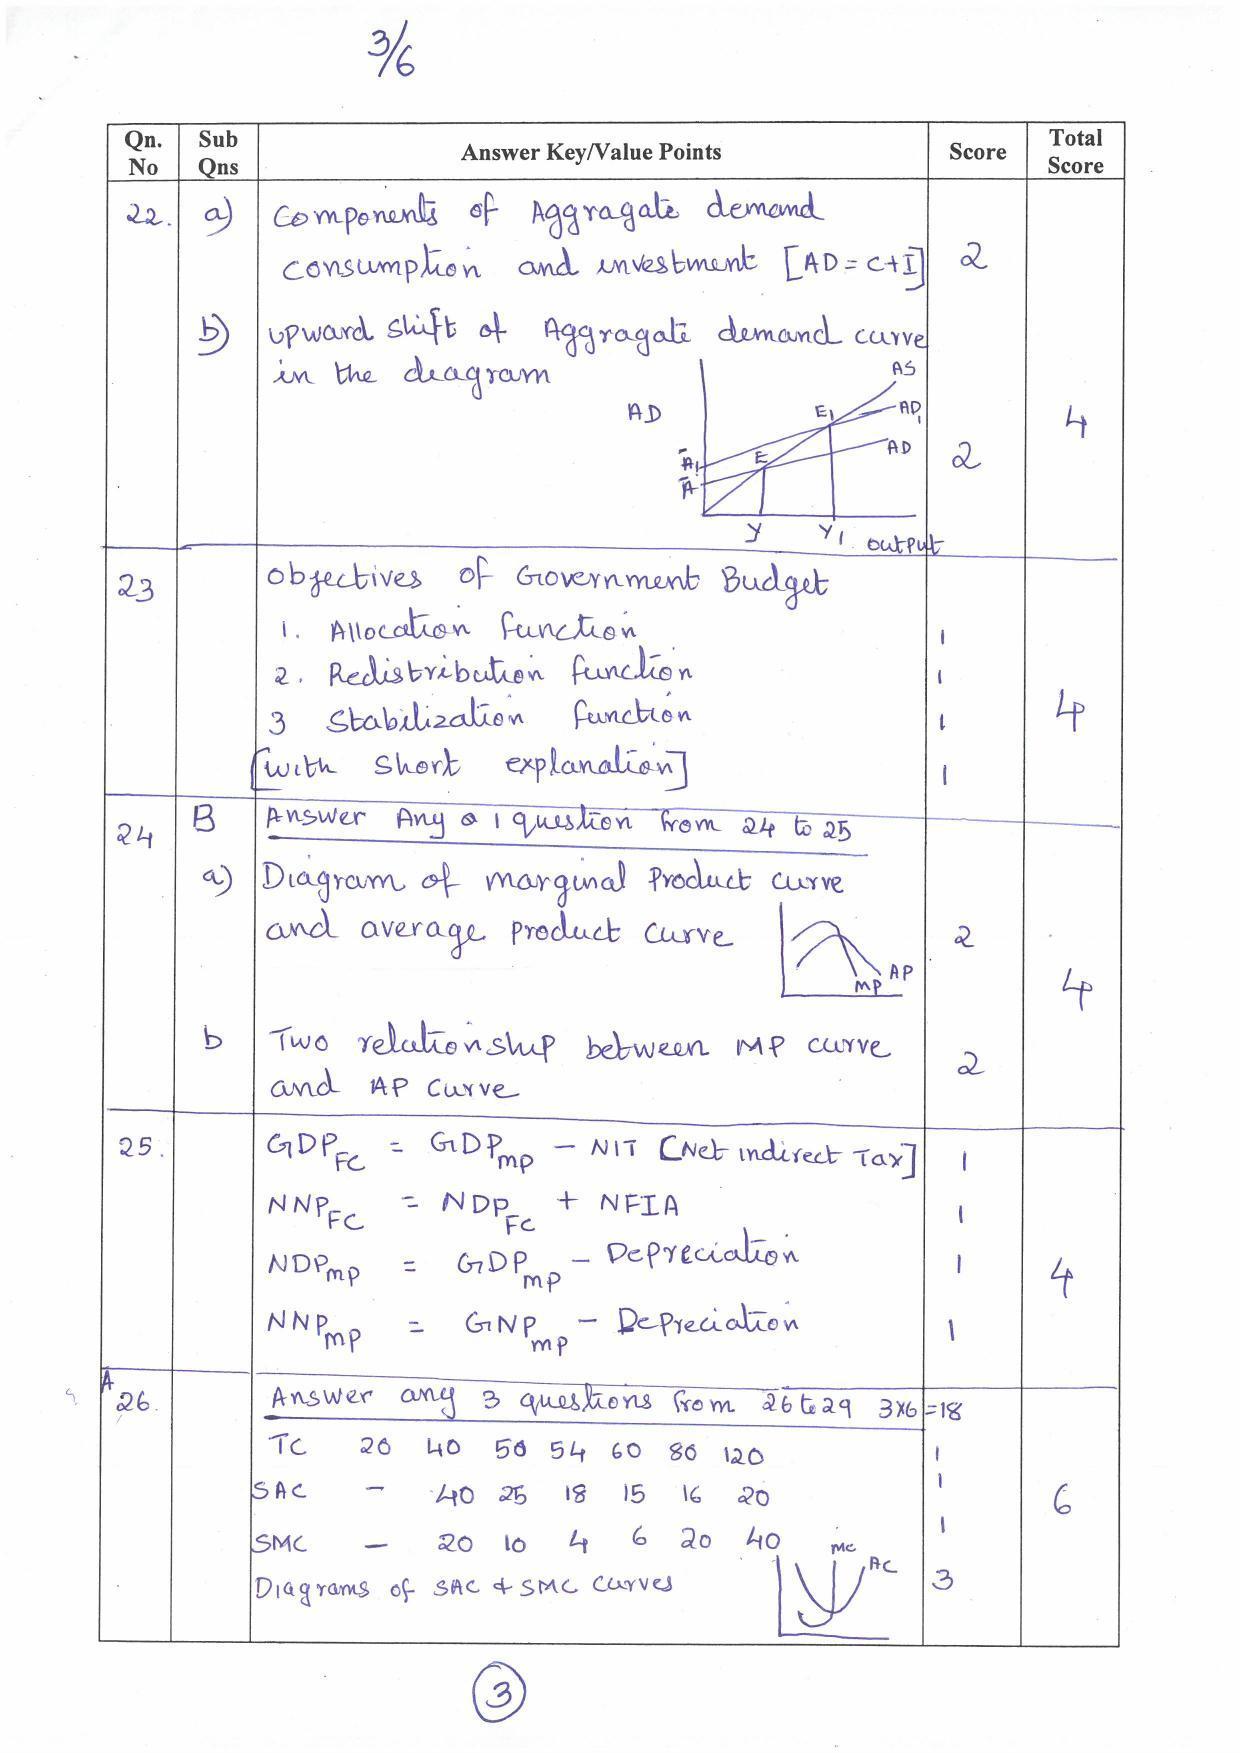 3/6
Qn. No Sub Qns Answer Key/Value Points Score Total Score
22. a) Components of Aggragate demand
consumption and investment [AD = C+I] 2
b) upward shift of Aggragate demand curve
in the diagram
AS
AD E1 AD1
Ā1 E AD 2 4
Ā
Y Y1 output
23 Objectives of Government Budget
1. Allocation function 1
2. Redistribution function 1
3 Stabilization function 1 4
[with short explanation] 1
24 B Answer Any 1 question from 24 to 25
a) Diagram of marginal Product curve
and average product curve 2
AP
MP 4
b Two relationship between MP curve
and AP curve 2
25. GDPFC = GDPmp - NIT [Net indirect Tax] 1
NNPFC = NDPFC + NFIA 1
NDPmp = GDPmp - Depreciation 1 4
NNPmp = GNPmp - Depreciation 1
A
26. Answer any 3 questions from 26 to 29 3x6=18
TC 20 40 50 54 60 80 120 1
SAC - 40 25 18 15 16 20 1 6
SMC - 20 10 4 6 20 40 1
MC
AC
Diagrams of SAC & SMC curves 3
3